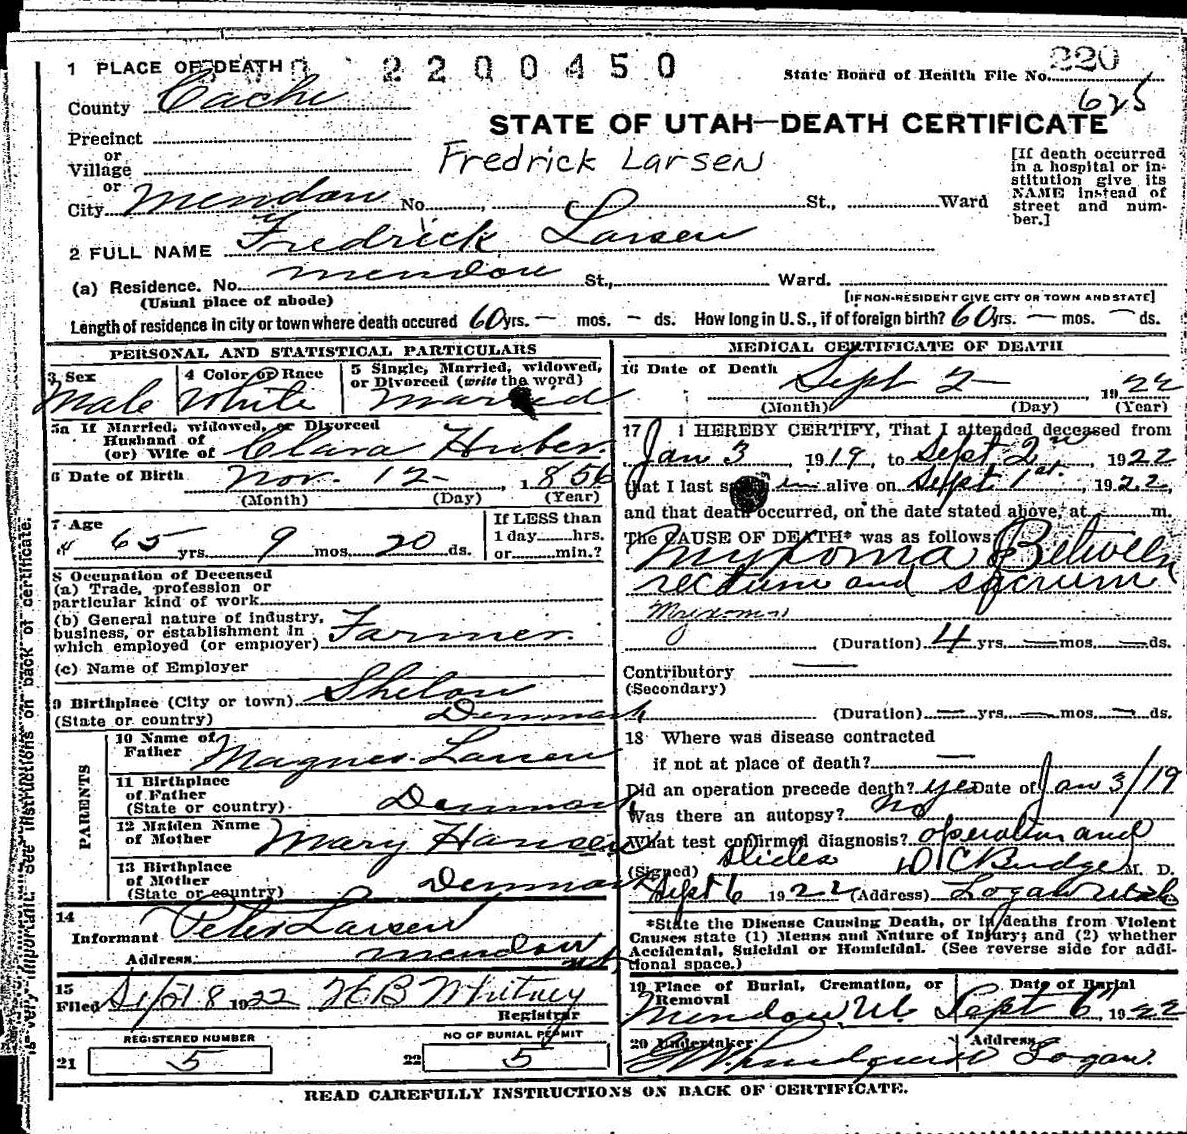 1 PLACE OF DEATH 2200450
State Board of Health File No. 220
625
County Cache
STATE OF UTAH—DEATH CERTIFICATE
Precinct
or
Village
or
Fredrick Larsen
[If death occurred
in a hospital or in-
stitution give its
NAME instead of
street and num-
ber.]
City Mendon No. St., Ward
2 FULL NAME Fredrick Larsen
(a) Residence. No. Mendon St., Ward.
(Usual place of abode) [IF NON-RESIDENT GIVE CITY OR TOWN AND STATE]
Length of residence in city or town where death occured 60 yrs. — mos. — ds. How long in U. S., if of foreign birth? 60 yrs. — mos. — ds.
PERSONAL AND STATISTICAL PARTICULARS
3 Sex
Male
4 Color or Race
White
5 Single, Married, widowed,
or Divorced (write the word)
Married
5a If Married, widowed, or Divorced
Husband of
(or) Wife of Clara Huber
6 Date of Birth Nov. 12, 1856
(Month) (Day) (Year)
7 Age
65 yrs. 9 mos. 20 ds.
If LESS than
1 day hrs.
or min.?
8 Occupation of Deceased
(a) Trade, profession or
particular kind of work
(b) General nature of industry,
business, or establishment in
which employed (or employer) Farmer.
(c) Name of Employer
9 Birthplace (City or town)
(State or country) Denmark
PARENTS
10 Name of
Father Magnes Larsen
11 Birthplace
of Father
(State or country) Denmark
12 Maiden Name
of Mother Mary Hansen
13 Birthplace
of Mother
(State or country) Denmark
14
Informant Peter Larsen
Address Mendon Ut
15
Filed Sept 8 1922 H B Whitney
Registrar
REGISTERED NUMBER
21 5
NO OF BURIAL PERMIT
22 5
MEDICAL CERTIFICATE OF DEATH
16 Date of Death Sept 2 1922
(Month) (Day) (Year)
17 I HEREBY CERTIFY, That I attended deceased from
Jan 3, 1919, to Sept 2nd, 1922
that I last saw him alive on Sept 1st, 1922,
and that death occurred, on the date stated above, at m.
The CAUSE OF DEATH* was as follows
Myxoma Between
rectum and sacrum
Myxoma
(Duration) 4 yrs. — mos. — ds.
Contributory —
(Secondary)
(Duration) — yrs. — mos. — ds.
18 Where was disease contracted
if not at place of death? —
Did an operation precede death? yes Date of Jan 3/19
Was there an autopsy? No
What test confirmed diagnosis? operation and
slides
(Signed) D C Budge M. D.
Sept 6 1922 (Address) Logan Utah
*State the Disease Causing Death, or in deaths from Violent
Causes state (1) Means and Nature of Injury; and (2) whether
Accidental, Suicidal or Homicidal. (See reverse side for addi-
tional space.)
19 Place of Burial, Cremation, or
Removal
Mendon Ut.
Date of Burial
Sept 6", 1922
20 Undertaker
Address
Logan.
READ CAREFULLY INSTRUCTIONS ON BACK OF CERTIFICATE.
See instructions on back of certificate.